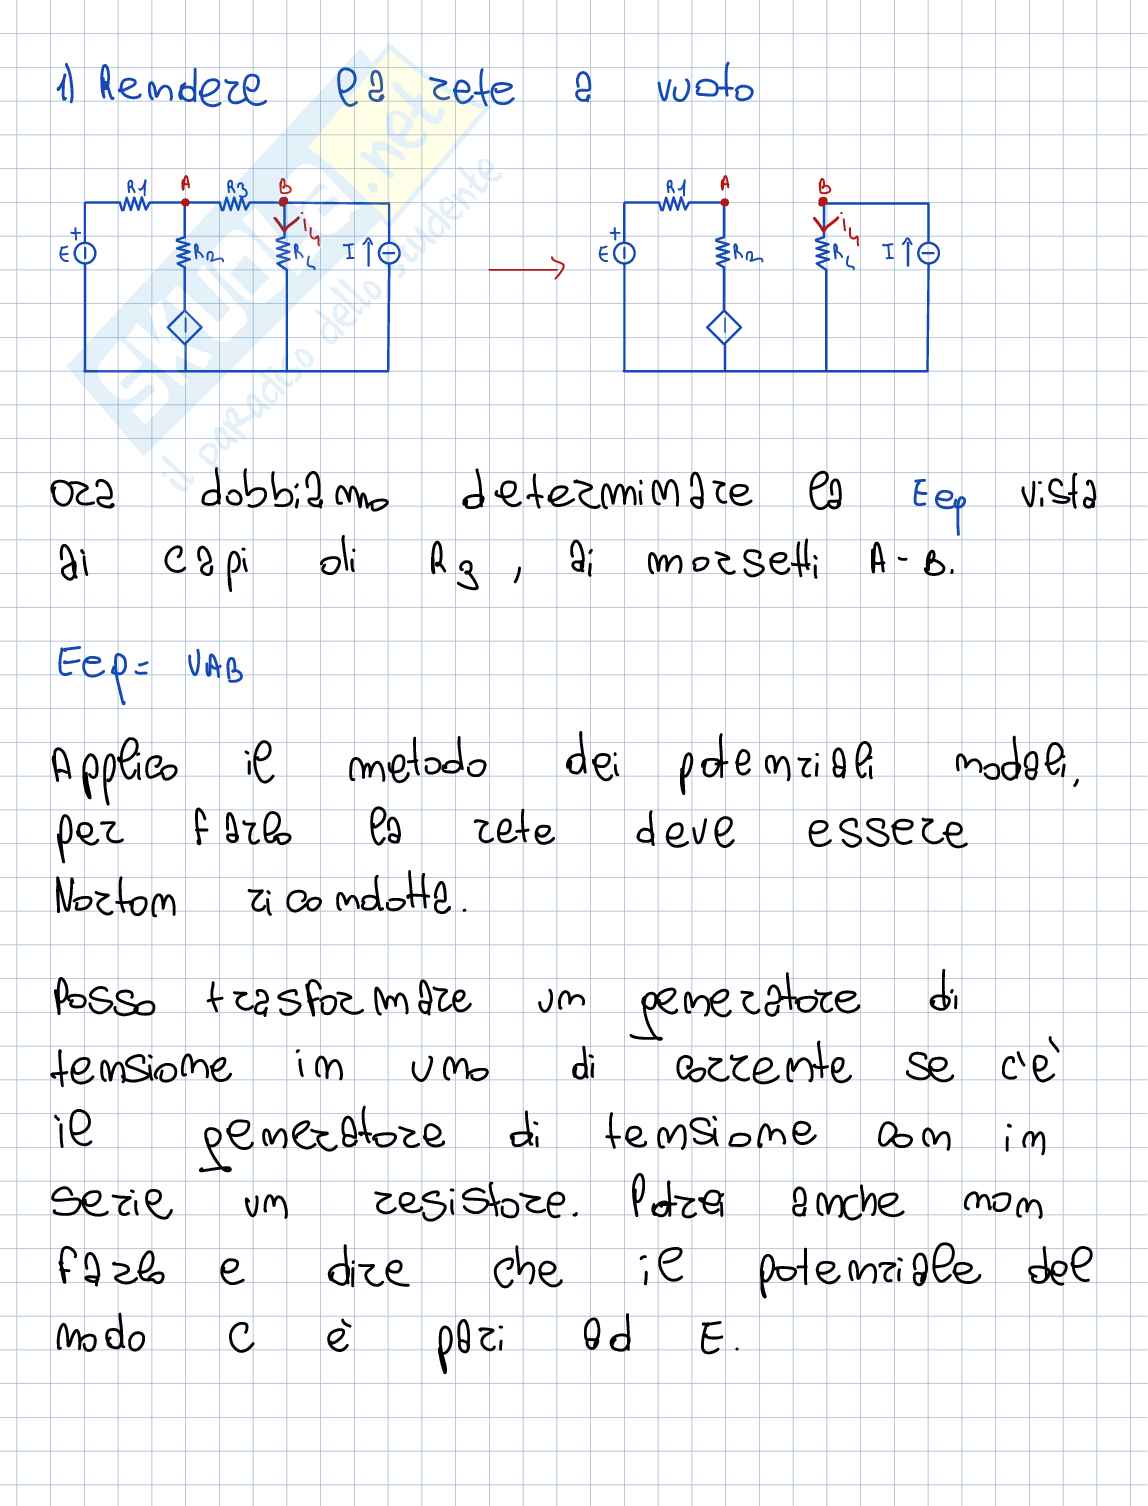 1) Rendere la rete a vuoto
R1 A R3 B
i4
+
E R2 R4 I
R1 A B
i4
+
E R2 R4 I
SKUOLA.net
il paradiso dello studente
ora dobbiamo determinare la Eeq vista
ai capi di R3, ai morsetti A-B.
Eeq = VAB
Applico il metodo dei potenziali nodali,
per farlo la rete deve essere
Norton ricondotta.
Posso trasformare un generatore di
tensione in uno di corrente se c'è
il generatore di tensione con in
serie un resistore. Potrei anche non
farlo e dire che il potenziale del
nodo C è pari ad E.